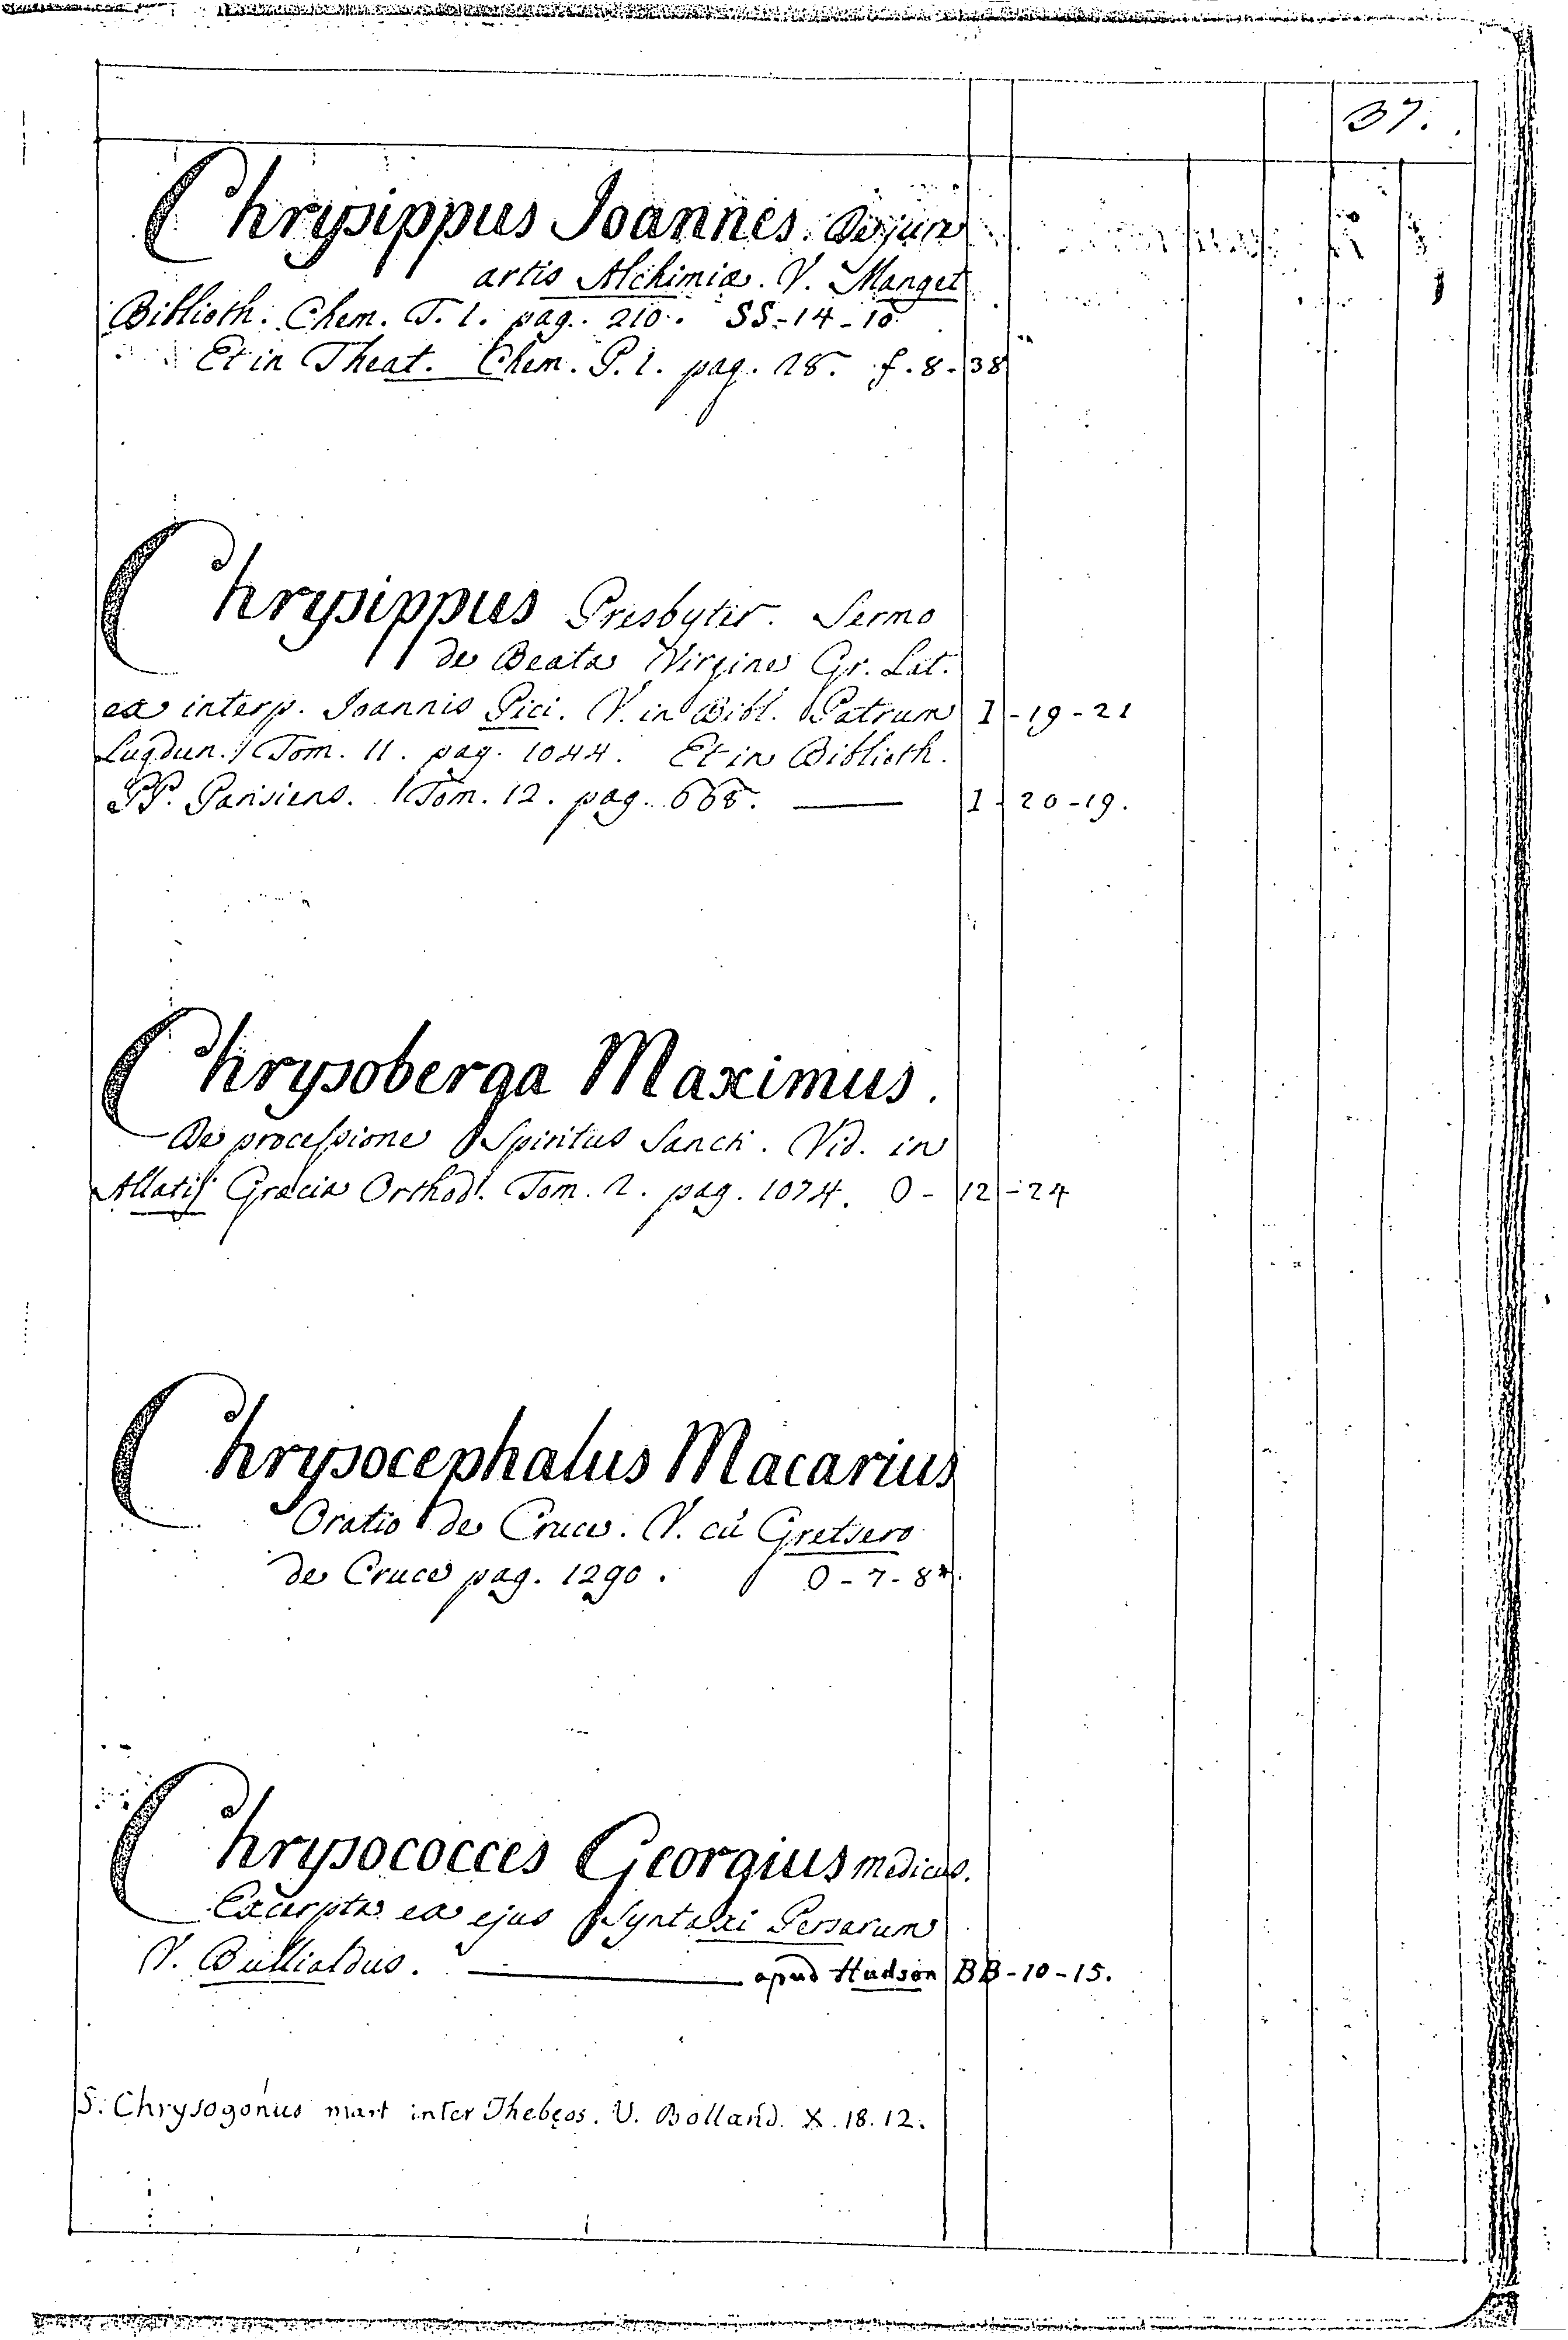 37.
Chrysippus Joannes. De jure
artis Alchimiæ. V. Manget
Biblioth. Chem. T. 1. pag. 210. SS-14-10
Et in Theat. Chem. P. 1. pag. 28. f. 8. 38
Chrysippus Presbyter. Sermo
de Beata Virgine Gr. Lat.
ex interp. Joannis Pici. V. in Bibl. Patrum I-19-21
Lugdun. Tom. 11. pag. 1044. Et in Biblioth.
PP. Parisiens. Tom. 12. pag. 668. — I-20-19.
Chrysoberga Maximus.
De processione Spiritus Sancti. Vid. in
Allatij Græcia Orthod. Tom. 2. pag. 1074. O-12-24
Chrysocephalus Macarius
Oratio de Cruce. V. cū Gretsero
de Cruce pag. 1290. O-7-8
Chrysococces Georgius medicus.
Excerpta ex ejus Syntaxi Persarum
V. Bullialdus. — apud Hudson BB-10-15.
S. Chrysogonus mart inter Thebęos. V. Bolland. X. 18. 12.